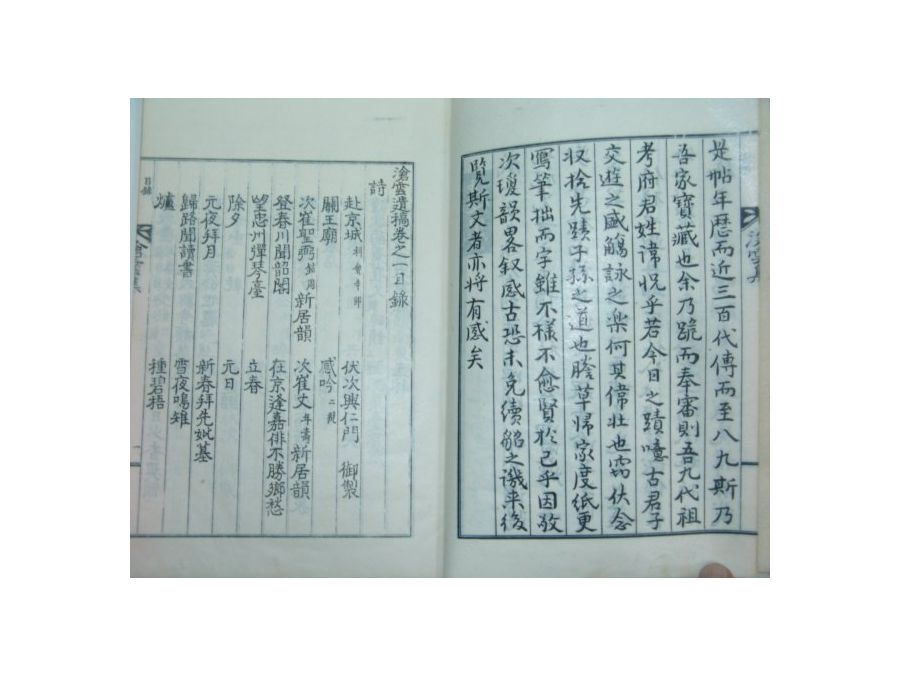 是帖年曆而近三百代傳而至八九斯乃
吾家寶藏也余乃跪而奉審則吾九代祖
考府君姓諱怳乎若今日之蹟噫古君子
交遊之盛觴詠之楽何其偉壯也窃伏念
収捨先蹟子孫之道也謄草歸家度紙更
寫筆拙而字雖不樣不愈賢於己乎因敢
次瓊韻畧叙感古恐未免續貂之譏来後
覧斯文者亦將有感矣
滄雲遺稿卷之一目錄
詩
赴京城 伏次興仁門 御製
關王廟 感吟
次崔聖弼 新居韻 次崔丈 新居韻
登春川聞韶閣 在京逢嘉俳不勝鄕愁
望忠州彈琴臺 立春
除夕 元日
元夜拜月 新春拜先妣墓
歸路聞讀書 雪夜鳴雉
爐 種碧梧
目錄